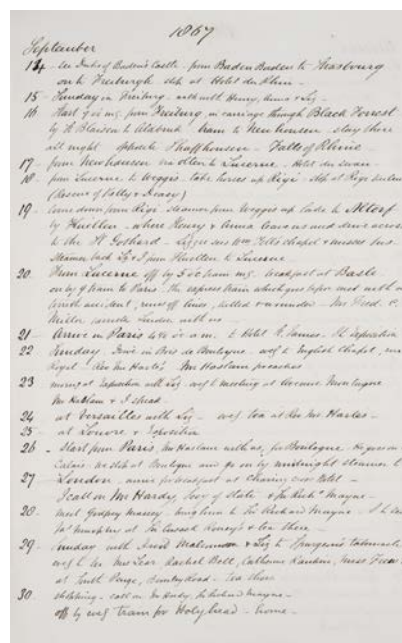 1867
September
14 - see Duke of Baden's Castle - from Baden Baden to Strasbourg
on to Freiburgh stop at Hotel du Rhin -
15 - Sunday in Freiburg - with Henry, Anna & Liz -
16 Start 7 a.m. from Freiburg, in carriage through Black Forrest
by St Blaison to Waldshut train to Neuhausen - stay there
all night opposite Shaffhausen - Falls of Rhine
17 - from Neuhausen via Olten to Lucerne - Hotel du Swan -
18 - from Lucerne to Weggis - take horses up Rigi - stop at Rigi
(Ascent of)
19 - Come down from Rigi - steamer from Weggis up lake to Altorf
by Fluellen - where Henry & Anna leave us and drive across
to the St Gothard - Liz & I see Wm Tell's chapel &
Steamer back Liz & I from Fluellen to Lucerne
20 From Lucerne off by 5 a.m. - breakfast at Basle -
on by 9 train to Paris. the express train which goes before met with a
accident, runs off lines, killed & wounded - Mr Fred.
London with us -
21 - Arrive in Paris a.m. to Hotel St James. Exposition
22 Sunday, Drive in Bois de Boulogne - evg to English Chapel, rue
Royal - Rev Mr Hartes - Mr Haslam preaches
23 morng at Exposition with Liz - evg to meeting at Avenue Montaigne
Mr Haslam & I speak -
24 at Versailles with Liz - evg tea at Rev Mr Hartes -
25 - at Louvre & Exposition
26 - Start from Paris, Mr Haslam with us, for Boulogne. He goes on
Calais - we stop at Boulogne and go on by midnight steamer to
27 - London. arrive for breakfast at Charing Cross Hotel -
I call on Mr Hardy, Secy of State & Sir Richd Mayne -
28 - meet Godfrey Massey - bring him to Sir Richard Mayne -
& tea there -
29 - Sunday with & Liz to Spurgeon's tabernacle
evg to Mrs Lear - Rachel Bolt, Catherine
at South Penge, Road - Tea there
30 - call on Mr Hardy, Sir Richard Mayne -
off by evg train for Holyhead - home -